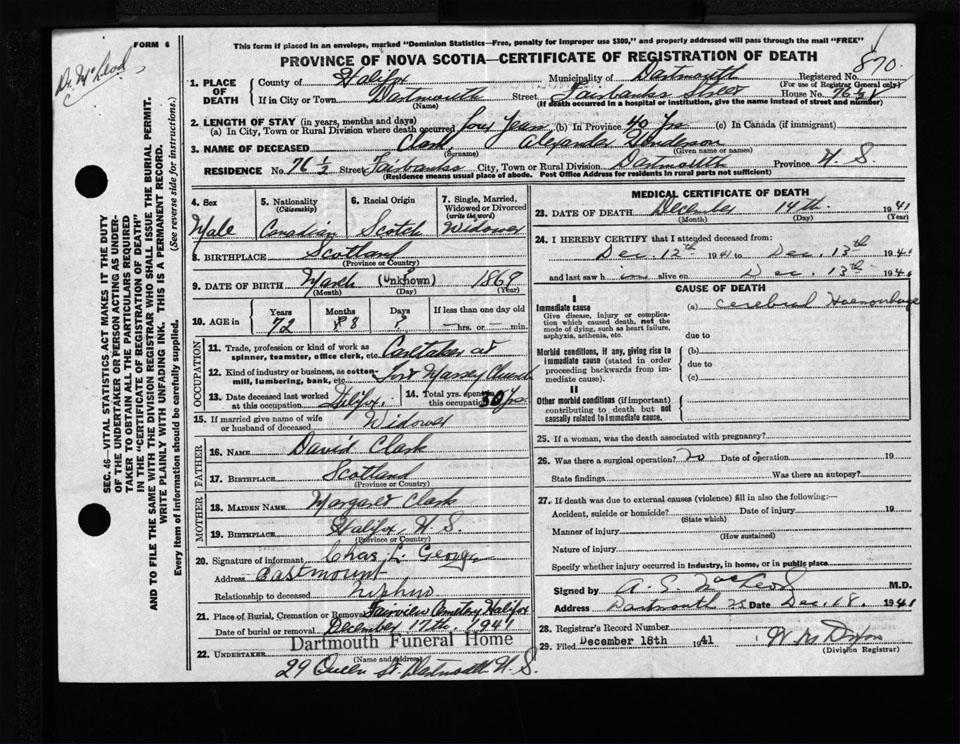 FORM 6
Dr. McLeod
This form if placed in an envelope, marked "Dominion Statistics—Free, penalty for improper use $300," and properly addressed will pass through the mail "FREE"
PROVINCE OF NOVA SCOTIA—CERTIFICATE OF REGISTRATION OF DEATH
870.
1. PLACE OF DEATH County of Halifax Municipality of Dartmouth Registered No.
(For use of Registrar General only)
If in City or Town Dartmouth Street Fairbanks Street House No. 76½
(Name) (If death occurred in a hospital or institution, give the name instead of street and number)
2. LENGTH OF STAY (in years, months and days)
(a) In City, Town or Rural Division where death occurred four Years (b) In Province 40 Yrs (c) In Canada (if immigrant)
3. NAME OF DECEASED Clark, Alexander Henderson
(Surname) (Given name or names)
RESIDENCE No. 76 ½ Street Fairbanks City, Town or Rural Division Dartmouth Province N. S.
(Residence means usual place of abode. Post Office Address for residents in rural parts not sufficient)
4. Sex
Male
5. Nationality (Citizenship)
Canadian
6. Racial Origin
Scotch
7. Single, Married, Widowed or Divorced (write the word)
Widower
8. BIRTHPLACE Scotland
(Province or Country)
9. DATE OF BIRTH March (Unknown) 1869
(Month) (Day) (Year)
10. AGE in Years Months Days If less than one day old
72 8 ? hrs. or min.
OCCUPATION
11. Trade, profession or kind of work as spinner, teamster, office clerk, etc. Caretaker at
12. Kind of industry or business, as cotton-mill, lumbering, bank, etc. Fort Massey Church
13. Date deceased last worked at this occupation Halifax.
14. Total yrs. spent in this occupation 30 Yrs
15. If married give name of wife or husband of deceased Widower
FATHER
16. NAME David Clark
17. BIRTHPLACE Scotland
(Province or Country)
MOTHER
18. MAIDEN NAME Margaret Clark
19. BIRTHPLACE Halifax, N. S.
(Province or Country)
20. Signature of informant Chas. L. George
Address Eastmount
Relationship to deceased Nephew
21. Place of Burial, Cremation or Removal Fairview Cemetery Halifax
Date of burial or removal December 17th. 1941
22. UNDERTAKER Dartmouth Funeral Home
(Name and address)
29 Queen St. Dartmouth N. S.
MEDICAL CERTIFICATE OF DEATH
23. DATE OF DEATH December 14th. 1941
(Month) (Day) (Year)
24. I HEREBY CERTIFY that I attended deceased from:
Dec. 12th 1941 to Dec. 13th 194
and last saw h im alive on Dec. 13th 194
CAUSE OF DEATH
I
Immediate cause (a) Cerebral Haemorrhage
Give disease, injury or complication which caused death, not the mode of dying, such as heart failure, asphyxia, asthenia, etc.
due to
Morbid conditions, if any, giving rise to immediate cause (stated in order proceeding backwards from immediate cause).
(b)
due to
(c)
II
Other morbid conditions (if important) contributing to death but not causally related to immediate cause.
25. If a woman, was the death associated with pregnancy?
26. Was there a surgical operation? no Date of operation 19
State findings Was there an autopsy?
27. If death was due to external causes (violence) fill in also the following:—
Accident, suicide or homicide? Date of injury 19
(State which)
Manner of injury
(How sustained)
Nature of injury
Specify whether injury occurred in industry, in home, or in public place
Signed by A. S. MacLeod M.D.
Address Dartmouth NS Date Dec. 18. 1941
28. Registrar's Record Number
29. Filed December 18th 1941 W M Dixon
(Division Registrar)
SEC. 46—VITAL STATISTICS ACT MAKES IT THE DUTY
OF THE UNDERTAKER OR PERSON ACTING AS UNDER-
TAKER TO OBTAIN ALL THE PARTICULARS REQUIRED
IN THE "CERTIFICATE OF REGISTRATION OF DEATH"
AND TO FILE THE SAME WITH THE DIVISION REGISTRAR WHO SHALL ISSUE THE BURIAL PERMIT.
WRITE PLAINLY WITH UNFADING INK. THIS IS A PERMANENT RECORD.
Every item of information should be carefully supplied. (See reverse side for instructions.)